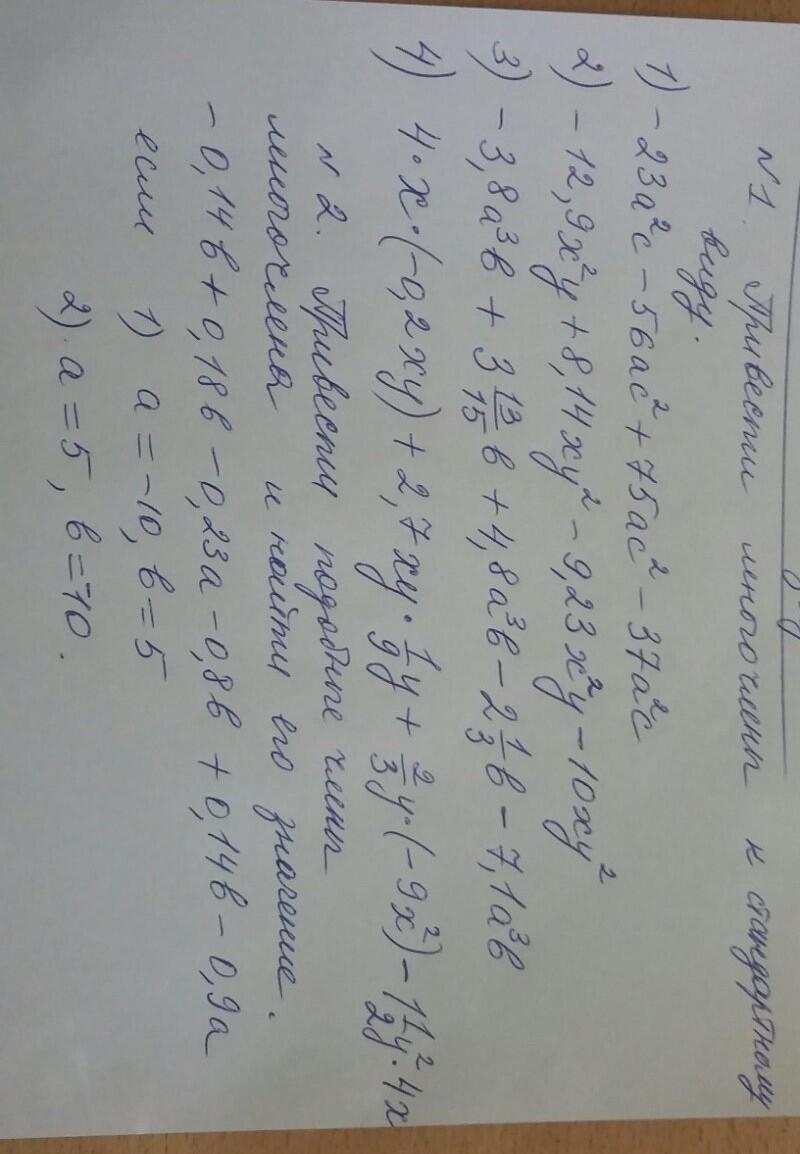 N 1. Привести многочлены к стандартному
виду.
1) - 23a²c - 56ac² + 75ac² - 37a²c
2) - 12,9x²y + 8,14xy² - 9,23x²y - 10xy²
3) - 3,8a³b + 3 13/15 b + 4,8a³b - 2 1/3 b - 7,1a³b
4) 4·x·(-0,2xy) + 2,7xy · 1/9 y + 2/3 y·(-9x²) - 1 1/2 y²·4x
N 2. Привести подобные члены
многочлена и найти его значение.
- 0,14b + 0,18b - 0,23a - 0,8b + 0,14b - 0,9a
если 1) a = -10, b = 5
2) a = 5, b = -10.